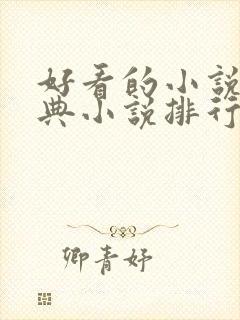 好看的小说
典小说排行
卿青妤